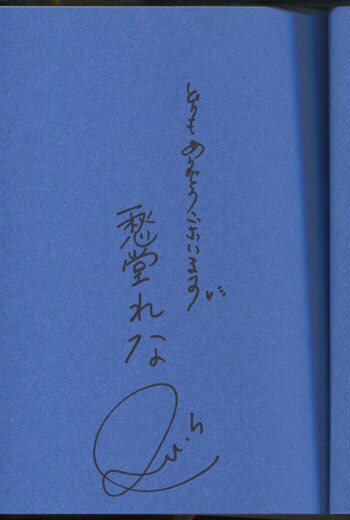 どうもありがとうございます
愁堂れな